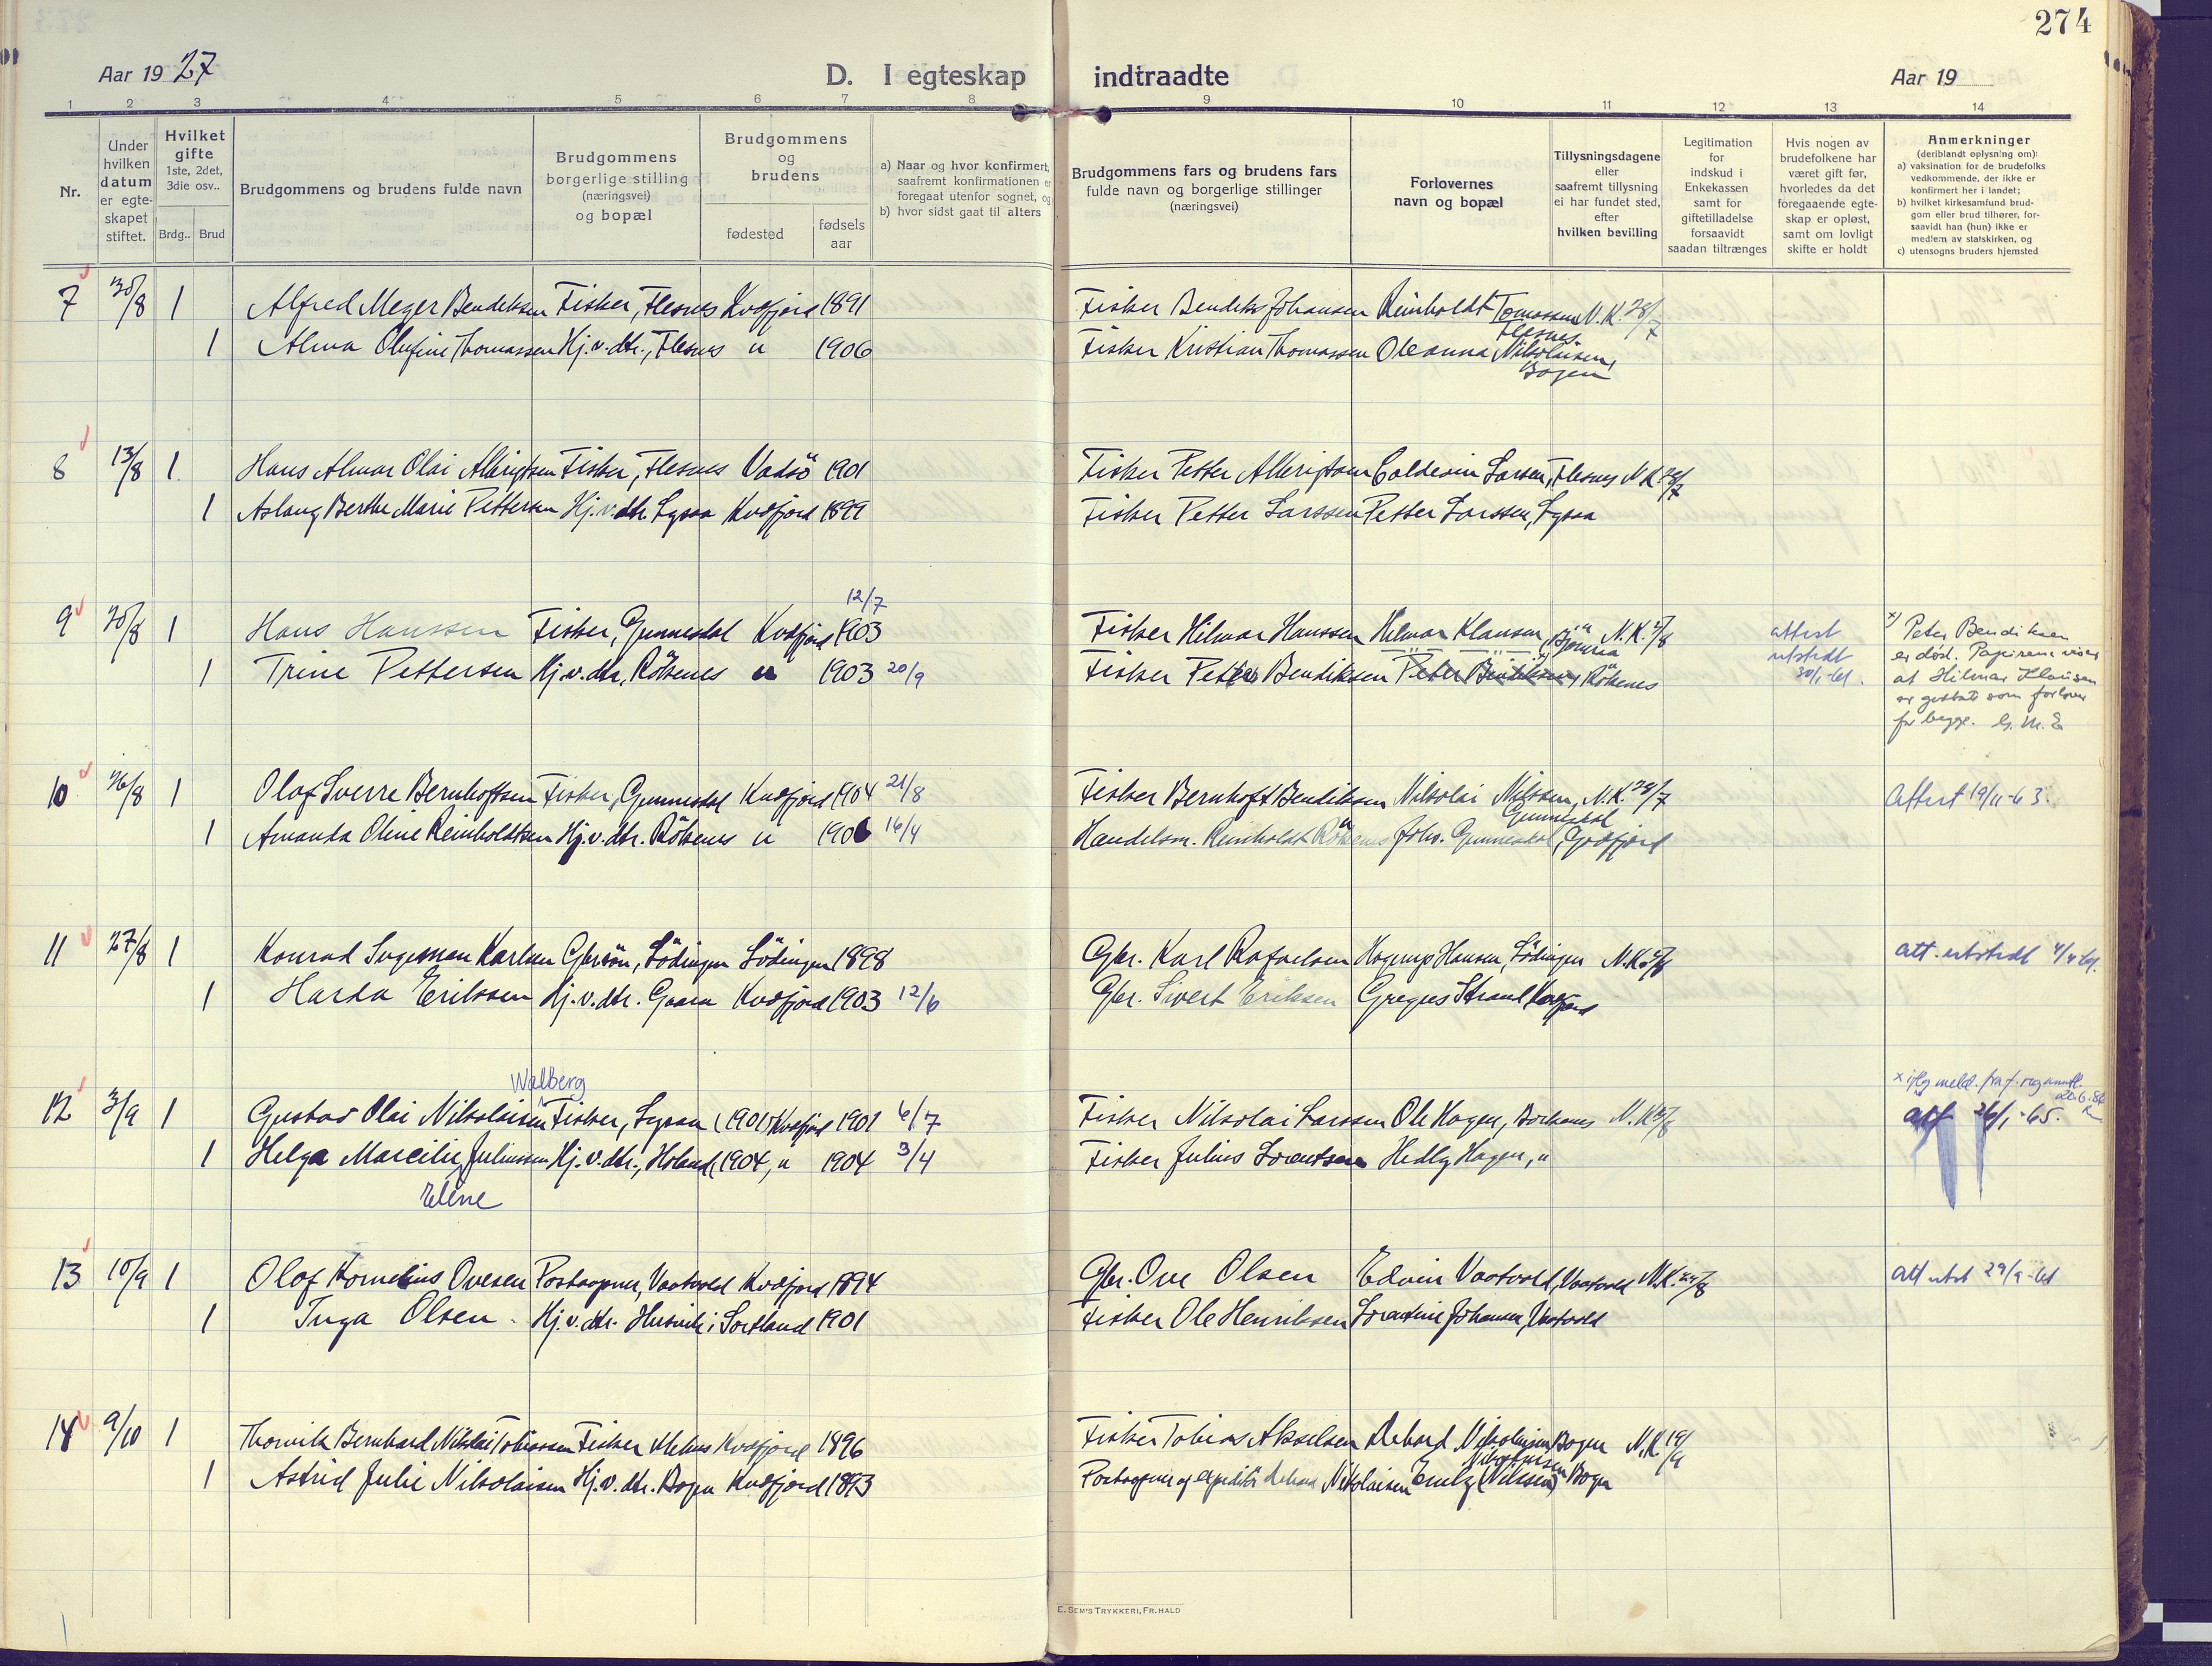 274
Aar 1927
D. I egteskap indtraadte
Aar 19
1 2 3 4 5 6 7 8 9 10 11 12 13 14
Nr.
Under hvilken datum er egte-skapet stiftet.
Hvilket gifte 1ste, 2det, 3die osv..
Brdg.. Brud
Brudgommens og brudens fulde navn
Brudgommens borgerlige stilling (næringsvei) og bopæl
Brudgommens og brudens
fødested
fødsels aar
a) Naar og hvor konfirmert, saafremt konfirmationen foregaat utenfor sognet,
b) hvor sidst gaat til alters
Brudgommens fars og brudens fars fulde navn og borgerlige stillinger (næringsvei)
Forlovernes navn og bopæl
Tillysningsdagene eller saafremt tillysning ei har fundet sted, efter hvilken bevilling
Legitimation for indskud i Enkekassen samt for giftetilladelse forsaavidt saadan tiltrænges
Hvis nogen av brudefolkene har været gift før, hvorledes da det foregaaende egte-skap er opløst, samt om lovligt skifte er holdt
Anmerkninger (deriblandt oplysning om):
a) vaksination for de brudefolks vedkommende, der ikke er konfirmert her i landet;
b) hvilket kirkesamfund brud-gom eller brud tilhører, for-saavidt han (hun) ikke er medlem av statskirken, og
c) utensogns bruders hjemsted
7 30/8 1 Alfred Meyer Bendiksen Fisker, Flesnes Kvæfjord 1891 Fisker Bendiks Johansen Reinholdt Tomassen N.K. 28/7
Flesnes.
1 Alma Olufine Thomassen Hj.v. dtr., Flesnes " 1906 Fisker Kristian Thomassen Oleanna Nikolaisen,
Bogen
8 13/8 1 Hans Almar Olai Albrigtsen Fisker, Flesnes Vadsö 1901 Fisker Petter Albrigtsen Larsen, Flesnes N.K. 28/7
1 Aslaug Berthe Marie Pettersen Hj.v. dtr Kvæfjord 1899 Fisker Petter Larssen Petter Larssen,
12/7
9 20/8 1 Hans Hanssen Fisker, Gunnesdal Kvæfjord 1903 Fisker Hilmar Hanssen Hilmar Klausen, Bjönnrå N.K. 5/8 attest utstedt 30/1-61.
1 Trine Pettersen Hj.v. dtr, Rökenes " 1903 20/9 Fisker Petter Bendiksen Peter Bendiksen, Rökenes
x) Peter Bendiksen
er død. Papirene viser
at Hilmar Klausen
er godtatt som forlover
for begge. G. M. E
10 26/8 1 Olaf Sverre Bernhoftsen Fisker, Gunnesdal Kvæfjord 1904 21/8 Fisker Bernhoft Bendiksen Nikolai Nilssen, N.K. 28/7 Attest 19/11-63.
Gunnesdal
1 Amanda Oline Reinholdtsen Hj.v. dtr. Rökenes " 1906 16/4 Handelsm. Reinholdt Rökenes Johs. Gunnesdal, Godfjord
11 27/8 1 Konrad Ingeman Karlsen Gbr.sön, Lödingen Lödingen 1898 Gbr. Karl Rafaelsen Hagerup Hansen, Lödingen N.K. 5/8 att. utstedt 4/4 61.
1 Harda Erikssen Hj.v. dtr. Gaara Kvæfjord 1903 12/6 Gbr. Sivert Eriksen Gregus Strand Kvæfjord
Walberg
12 3/9 1 Gustav Olai Nikolaisen Fisker, (1901) Kvæfjord 1901 6/7 Fisker Nikolai Larssen Ole Hagen, Borkenes N.K.
x iflg meld. fra f. reg.
att 26/1-65.
1 Helga Marcilie Juliussen Hj.v. dtr., Holand, (1904, " 1904 3/4 Fisker Julius Lorentsen Hedly Hagen, "
Eline
13 10/9 1 Olaf Kornelius Ovesen Postaapner, Vaatvold Kvæfjord 1894 Gbr. Ove Olsen Edvin Vaatvold, Vaatvold N.K. 22/8 att utst 29/9-61
1 Inga Olsen Hj.v. dtr. Husvik i Sortland 1901 Fisker Ole Henriksen Lorentine Johansen, Vaatvold
14 9/10 1 Thorvik Bernhard Nikolai Tobiassen Fisker Kvæfjord 1896 Fisker Tobias Akselsen Dehard Nikolaisen Bogen N.K. 19/9
1 Astrid Julie Nikolaisen Hj.v. dtr. Bogen Kvæfjord 1893 Postaapner og expeditör Dehard Nikolaisen Emely (Nilssen) Nikolaisen Bogen
E. SEM'S TRYKKERI, FR.HALD